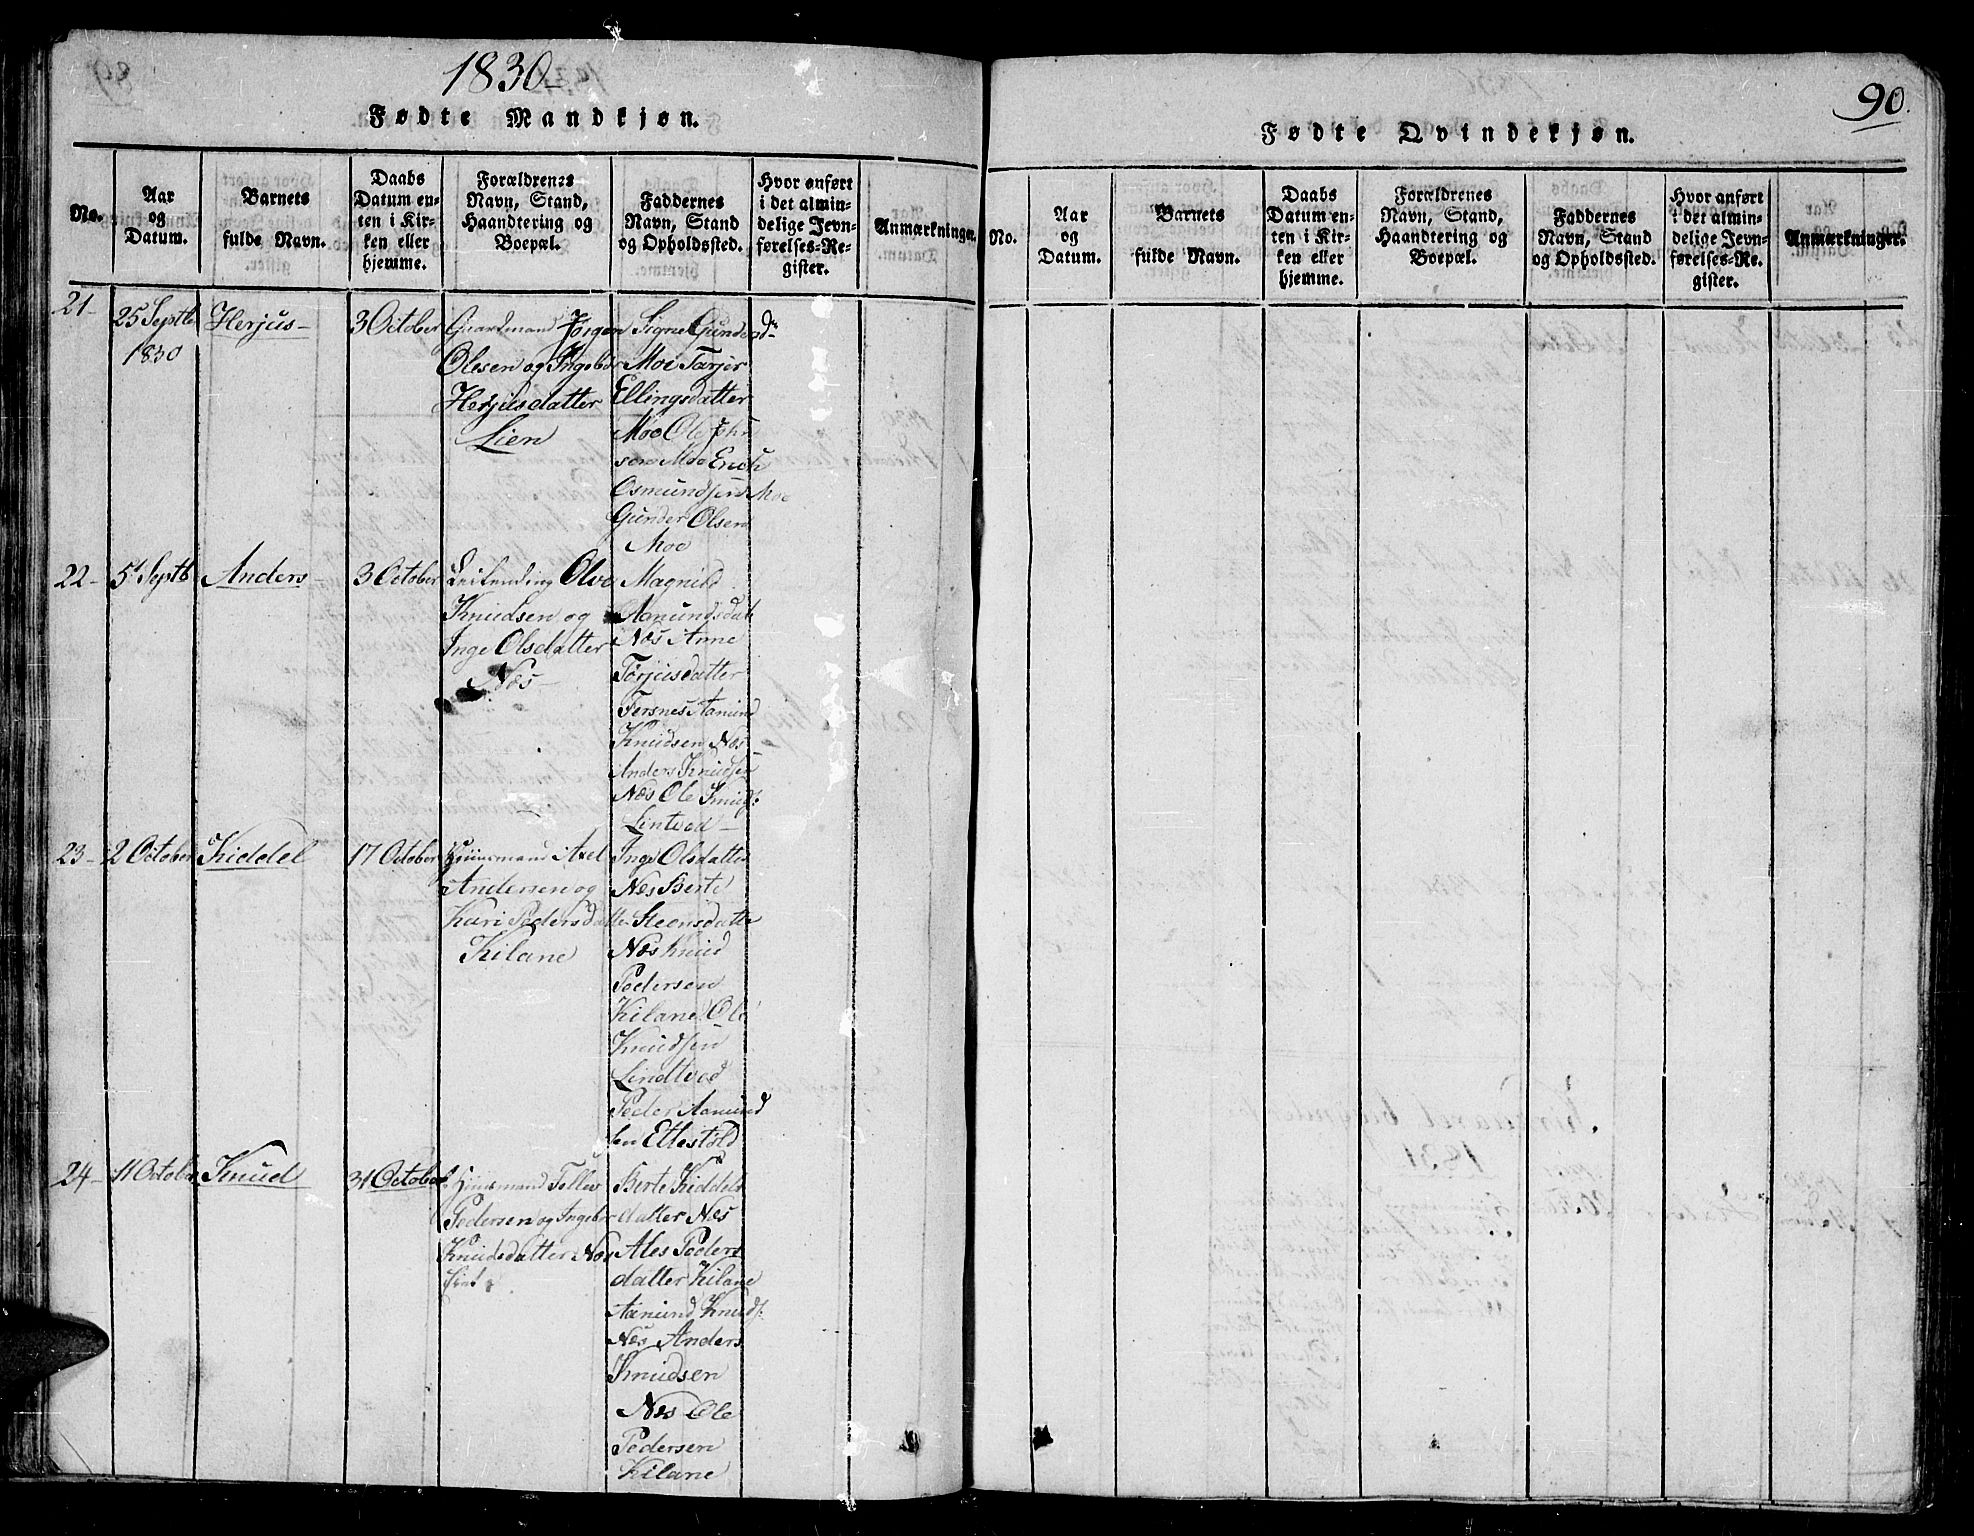 1830
Fødte Mandkjøn.
No.
Aar
og
Datum.
Barnets
fulde Navn.
Daabs
Datum en-
ten i Kir-
ken eller
hjemme.
Forældrenes
Navn, Stand,
Haandtering og
Boepæl.
Faddernes
Navn, Stand
og Opholdssted.
Hvor anført
i det almin-
delige Jevn-
førelses-Re-
gister.
Anmærkninger.
21-
25 Septb
1830
Herjus-
3 October
Guardmand Jörgen
Olesen og Ingebor
Herjusdatter
Lien
Signe Gunders
Moe Tarjer
Ellingsdatter
Moe Ole John
sen Moe Erich
Osmundsens Moe
Gunder Olsen
Moe
22-
5 Septb
Anders-
3 October
Leilending Olve
Knudsen og
Inge Olsdatter
Næs-
Magnild
Aamundsdat
Næs Anne
Törjusdatter
Fersnes Aamund
Knudsen Næs
Anders Knudsen
Næs Ole Knuds:
Lintved-
23-
2 October
Kiddel
17 October
Huusmand Axel
Andersen og
Kari Pedersdatter
Kilane
Inge Olsdatter
Næs Berte
Steensdatte
Næs Knud
Pedersen
Kilane Ole
Knudsen
Lindtved
Peder Aamund
sen Ettestöld
24-
11 October
Knud
31 October
Huusmand Tellev
Pedersen og Ingebor
Knudsdatter Næs
Berte Kiddels
datter Næs
Ales Peders
datter Kilane
Aamund Knuds:
Næs Anders
Knudsen
Næs Ole
Pedersen
Kilane
90.
Fødte Qvindekjøn.
No.
Aar
og
Datum.
Barnets
fulde Navn.
Daabs
Datum en-
ten i Kir-
ken eller
hjemme.
Forældrenes
Navn, Stand,
Haandtering og
Boepæl.
Faddernes
Navn, Stand
og Opholdssted.
Hvor anført
i det almin-
delige Jevn-
førelses-Re-
gister.
Anmærkninger.